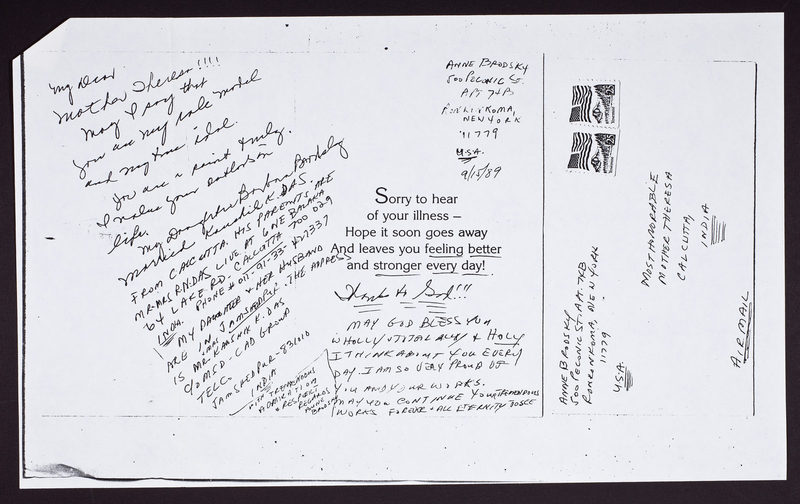 My Dear
Mother Theresa!!!!
May I say that
you are my role model
and my true idol.
You are a saint & truly.
I value your outlook on
life.
My Daughter Barbara Brodsky
married Kaushik K. DAS.
FROM CALCUTTA. HIS PARENTS ARE
MR & MRS R.N. DAS LIVE AT
64 LAKE RD. CALCUTTA 700 029
INDIA. PHONE # 011-91-33-427337
MY DAUGHTER & HER HUSBAND
ARE IN JAMSHEDPUR. THE ADDRESS
IS MR. KAUSHIK K. DAS
C/O MSD-CAD GROUP
TELC-
JAMSHEDPUR-831010
INDIA
WITH TREMENDOUS
ADMIRATION
& RESPECT
REGARDS
ANNE
BRODSKY
ANNE BRODSKY
500 PECONIC ST.
APT 74B
RONKONKOMA,
NEW YORK
11779
U.S.A.
9/15/89
Sorry to hear
of your illness –
Hope it soon goes away
And leaves you feeling better
and stronger every day!
Thanks to God!!!
MAY GOD BLESS YOU
WHOLLY & TOTALLY & HOLY
I THINK ABOUT YOU EVERY
DAY. I AM SO VERY PROUD OF
YOU AND YOUR WORKS.
MAY YOU CONTINUE YOUR TREMENDOUS
WORKS FOREVER & ALL ETERNITY
MOST HONORABLE
MOTHER THERESA
CALCUTTA,
INDIA
AIR MAIL
ANNE BRODSKY
500 PECONIC ST. APT. 74B
RONKONKOMA, NEW YORK
11779
U.S.A.